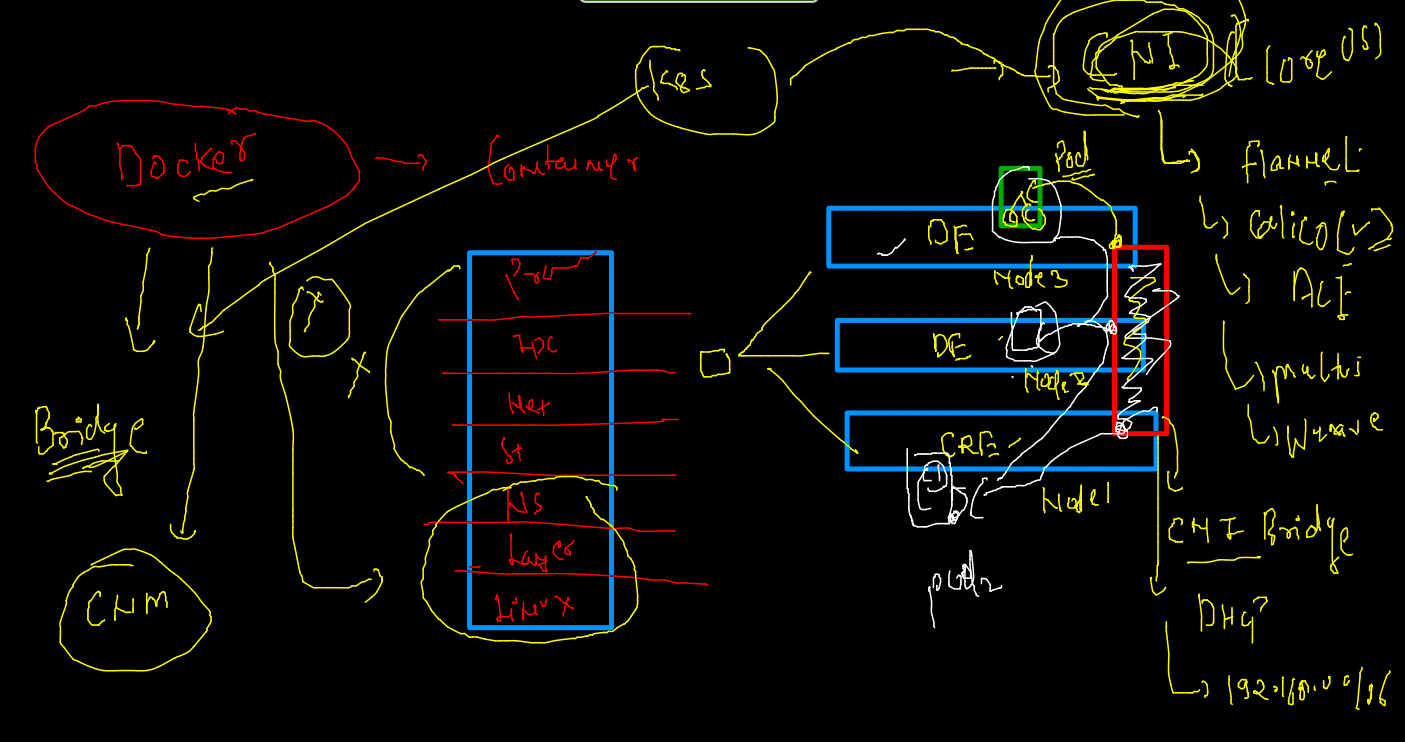 Docker
Container
K8S
CNI (CoreOS)
Flannel
Calico (✓)
ACI
Multus
Weave
Bridge
CNM
Pro
IPC
Net
St
NS
Layer
Linux
Pod
DE
Node3
DE
Node2
CRE
Node1
pod2
CNI Bridge